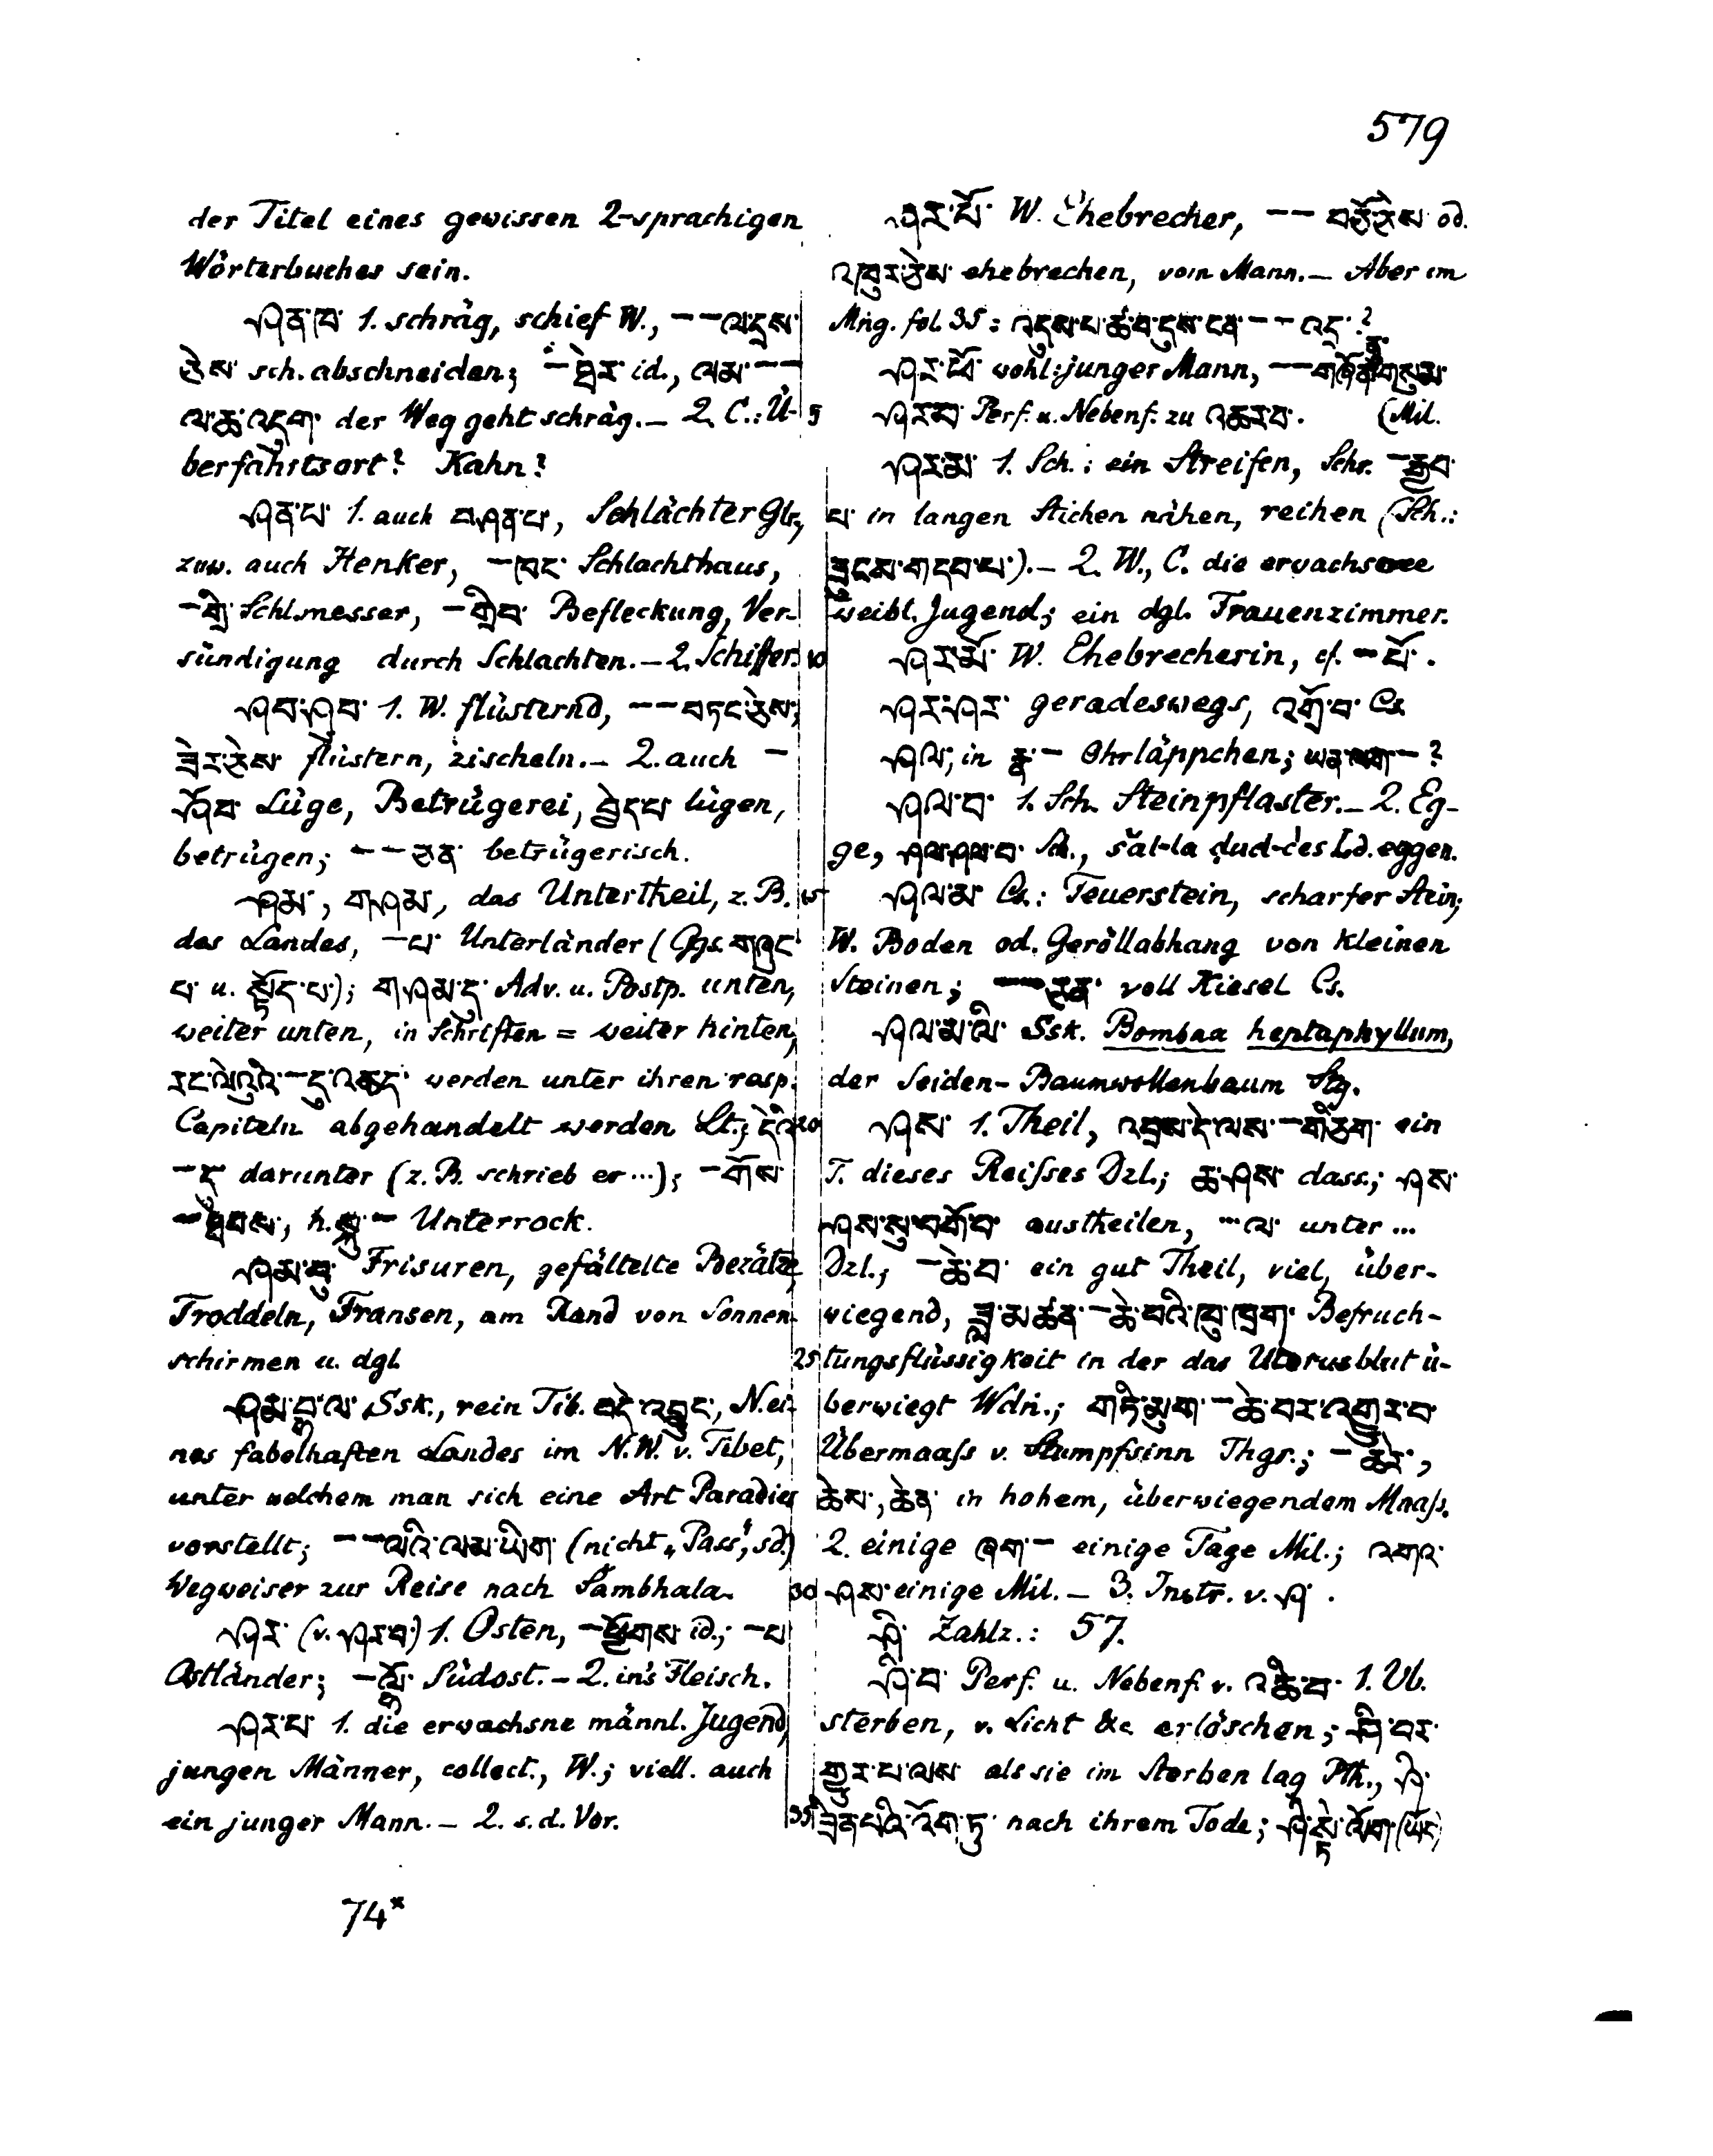 579
der Titel eines gewissen 2-sprachigen
Wörterbuches sein.
ཤན་ཁ་ 1. schräg, schief W., –– ལ་དྲས་
ཅེས་ sch. abschneiden; – ཐེར་ id., ལམ་ ––
ལ་ཆ་འདུག་ der Weg geht schräg. – 2. C.: Ü-
berfahrtsort? Kahn?
ཤན་པ་ 1. auch བཤན་པ་, Schlächter Glr.,
zuw. auch Henker, – ཁང་ Schlachthaus,
– གྲི་ Schl.messer, – གྲིབ་ Befleckung, Ver-
sündigung durch Schlachten. – 2. Schiffer.
ཤབ་ཤབ་ 1. W. flüsternd, –– བཏང་ཅེས་,
ཟེར་ཅེས་ flüstern, zischeln. – 2. auch –
ཤོབ་ Lüge, Betrügerei, བྱེད་པ་ lügen,
betrügen; –– ཅན་ betrügerisch.
ཤམ་, གཤམ་, das Untertheil, z. B.
des Landes, – པ་ Unterländer (Ggs. གཞུང་
པ་ u. སྟོད་པ་); གཤམ་དུ་ Adv. u. Postp. unten,
weiter unten, in Schriften = weiter hinten,
རང་ལེའུའི་ – དུ་འཆད་ werden unter ihren resp.
Capiteln abgehandelt werden Lt.; དེའི་
– དུ་ darunter (z. B. schrieb er ...); – གོས་
– ཐབས་, h. སྐུ་ – Unterrock.
ཤམ་བུ་ Frisuren, gefältelte Besätze,
Troddeln, Fransen, am Rand von Sonnen-
schirmen u. dgl.
ཤམ་བྷ་ལ་ Ssk., rein Tib. བདེ་འབྱུང་, N. ei-
nes fabelhaften Landes im N.W. v. Tibet,
unter welchem man sich eine Art Paradies
vorstellt; –– ལའི་ལམ་ཡིག་ (nicht „Pass“, sd.)
Wegweiser zur Reise nach Šambhala.
ཤར་ (v. ཤར་བ་) 1. Osten, – ཕྱོགས་ id.; – པ་
Ostländer; – ལྷོ་ Südost. – 2. ins Fleisch.
ཤར་པ་ 1. die erwachsne männl. Jugend,
jungen Männer, collect., W.; viell. auch
ein junger Mann. – 2. s. d. Vor.
74*
ཤར་པོ་ W. Ehebrecher, –– བཅོ་ཅེས་ od.
འཁུར་ཅེས་ ehebrechen, vom Mann. – Aber im
Mng. fol. 35: འདུས་པ་ཚ་བ་དུས་ངན་ –– འདྲ་?
ཤར་ཕོ་ wohl: junger Mann, –– གཞོན་ནུ་གསུམ་
ཤར་བ་ Perf. u. Nebenf. zu འཆར་བ་. (Mil.
ཤར་མ་ 1. Sch.: ein Streifen, Schr. – རྒྱབ་
པ་ in langen Stichen nähen, reihen (Sch.:
གདབ་པ་). – 2. W., C. die erwachsene
weibl. Jugend; ein dgl. Frauenzimmer.
ཤར་མོ་ W. Ehebrecherin, cf. – པོ་.
ཤར་ཤར་ geradeswegs, འགྲོ་བ་ Cs.
ཤལ་, in རྣ་ – Ohrläppchen; – ?
ཤལ་བ་ 1. Sch. Steinpflaster. – 2. Eg-
ge, ཤལ་ཤལ་བ་ Sch., šal-la ḍud-čes Ld. eggen.
ཤལ་མ་ Cs.: Feuerstein, scharfer Stein;
W. Boden od. Geröllabhang von kleinen
Steinen; –– ཅན་ voll Kiesel Cs.
ཤལ་མ་ལི་ Ssk. Bombax heptaphyllum,
der Seiden-Baumwollenbaum Stg.
ཤས་ 1. Theil, འབྲས་དེ་ལས་ – གཅིག་ ein
T. dieses Reisses Dzl.; ཆ་ཤས་ dass.; ཤས་
ཤས་སུ་བགོ་བ་ austheilen, ... ལ་ unter ...
Dzl.; – ཆེ་བ་ ein gut Theil, viel, über-
wiegend, ཟླ་མཚན་ – ཆེ་བའི་ཁུ་ཁྲག་ Befruch-
tungsflüssigkeit in der das Uterusblut ü-
berwiegt Wdn.; གཏི་མུག་ – ཆེ་བར་འགྱུར་བ་
Übermaass v. Stumpfsinn Thgr.; – ཆེར་,
ཆེས་, ཆེན་ in hohem, überwiegendem Maass.
2. einige ཞག་ – einige Tage Mil.; འགའ་
ཤས་ einige Mil. – 3. Instr. v. ཤ་.
ཤི་ Zahlz.: 57.
ཤི་བ་ Perf. u. Nebenf. v. འཆི་བ་ 1. Vb.
sterben, v. Licht &c erlöschen; ཤི་བར་
གྱུར་པ་ལས་ als sie im Sterben lag Pth., ཤི་
ཟིན་པའི་འོག་ཏུ་ nach ihrem Tode; ཤི་སྟེ་ལོག་(ཡོང་)
5
10
15
20
25
30
35